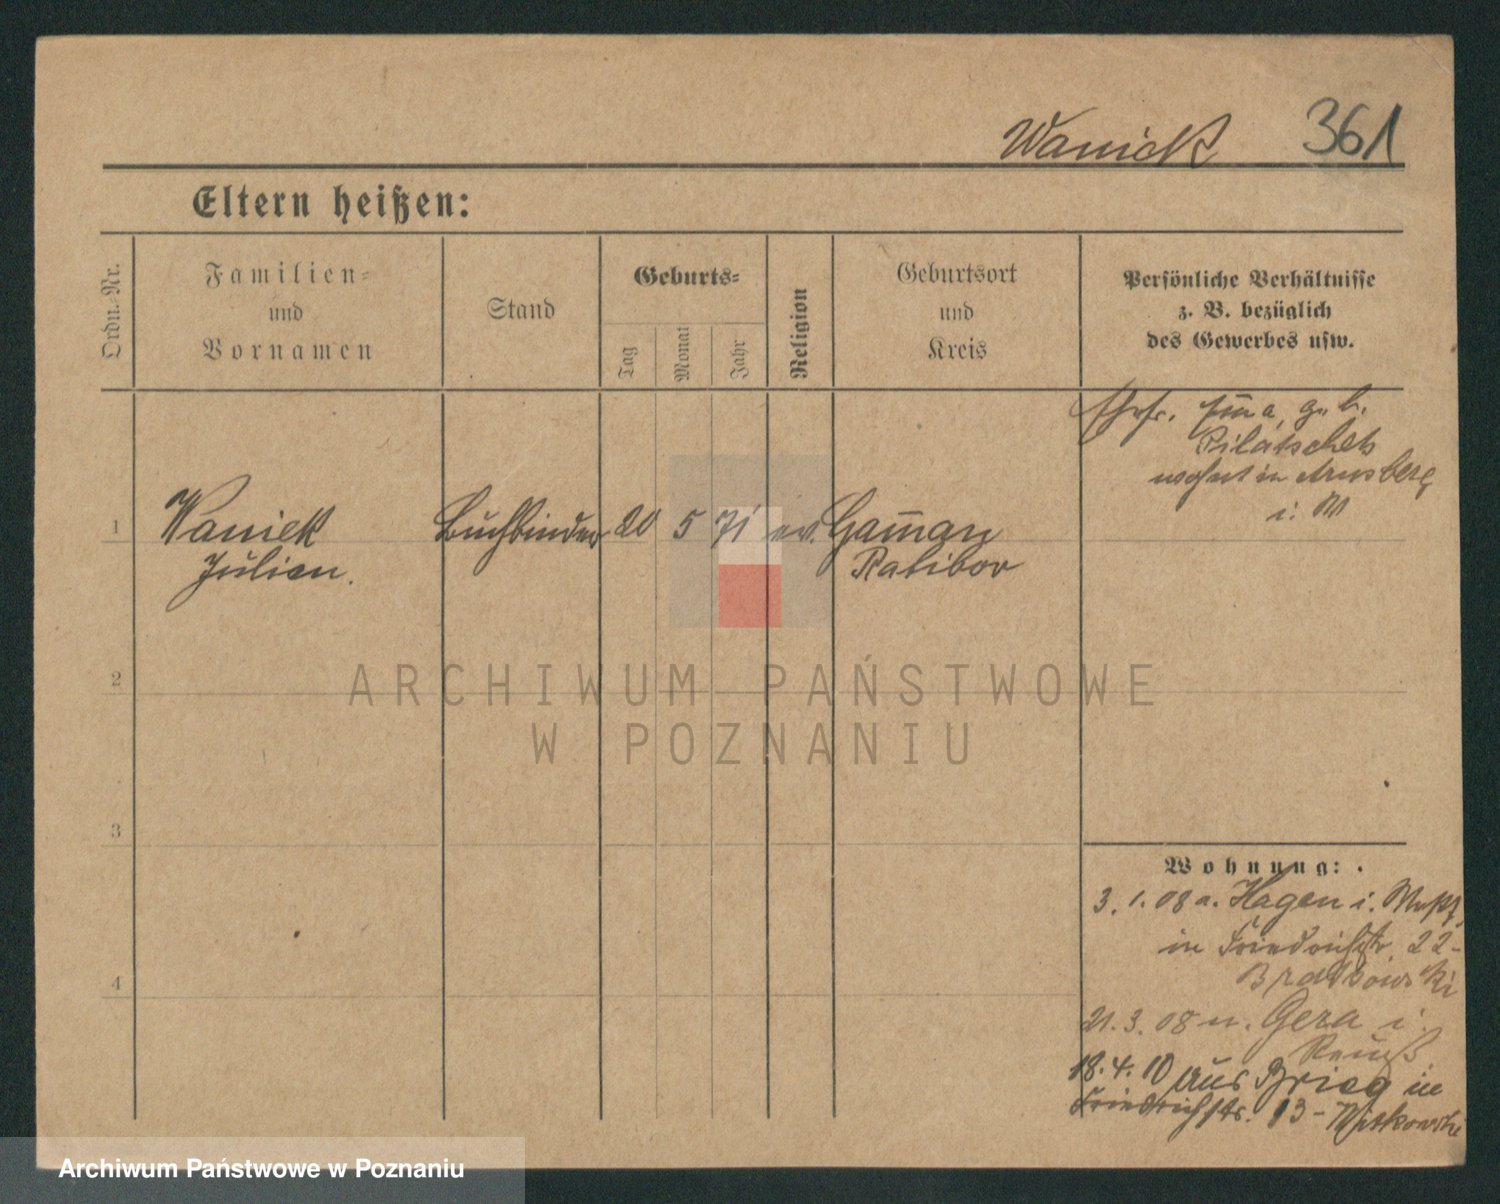 Waniek 361
Eltern heißen:
Ordn.-Nr.
Familien-
und
Vornamen
Stand
Geburts-
Tag
Monat
Jahr
Religion
Geburtsort
und
Kreis
Persönliche Verhältnisse
z. B. bezüglich
des Gewerbes usw.
Ehefr. geb.
wohnt in Arnsberg
i. W
1 Waniek Buchbinder 20 5 71 ev. Gam̅au
Julian. Ratibor
2
3
4
Wohnung:
3. 1. 08 a. Hagen i. Westf.
in Friedrichstr. 22-
21. 3. 08 n. Gera i.
Reuß
18. 4. 10 aus Brieg in
Friedrichstr. 13- Witkowski
ARCHIWUM PAŃSTWOWE
W POZNANIU
Archiwum Państwowe w Poznaniu